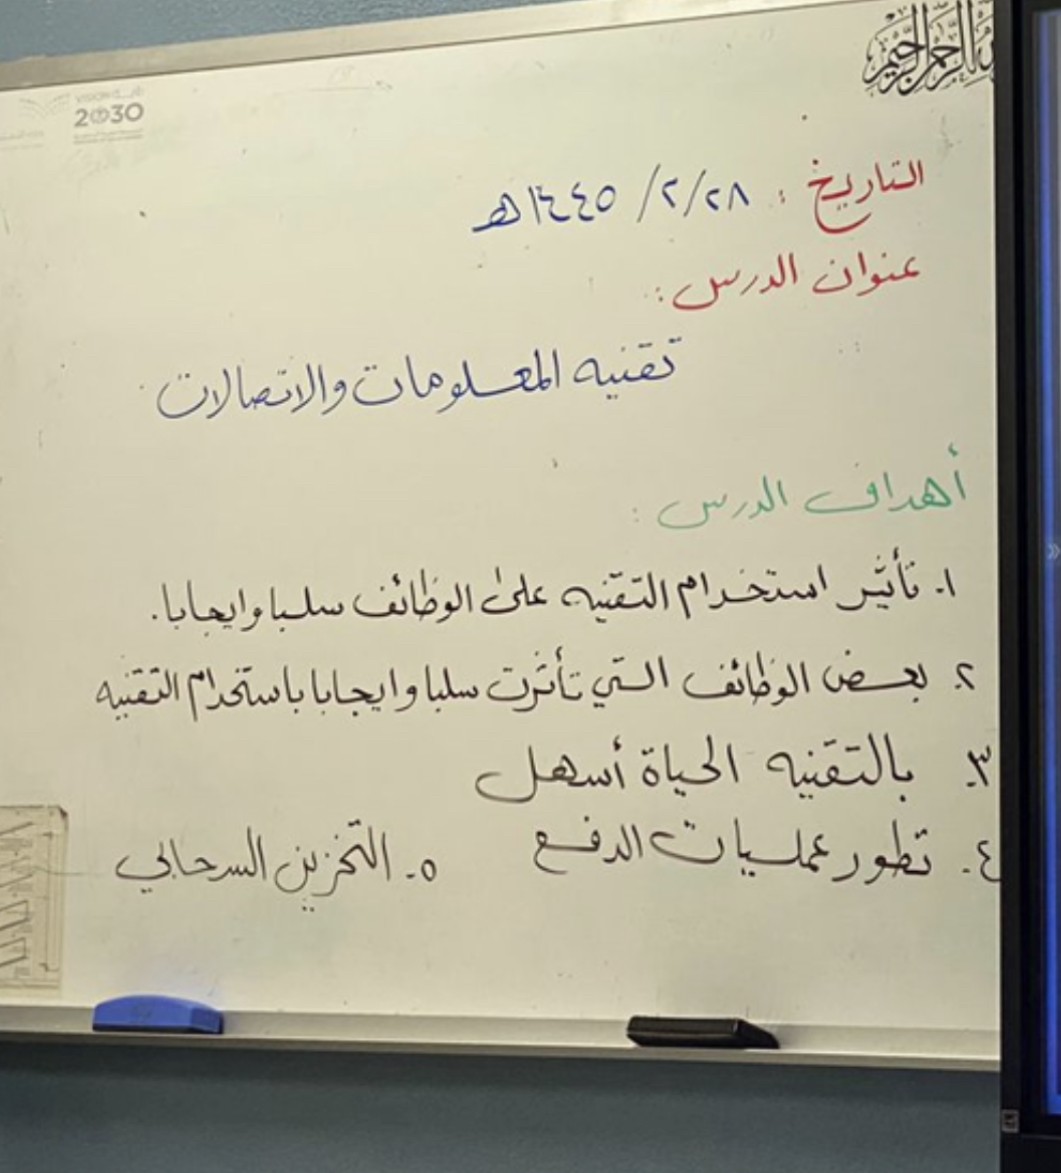 بسم الله الرحمن الرحيم
VISION رؤية
2030
التاريخ : ٢٨/ ٢/ ١٤٤٥هـ
عنوان الدرس :
تقنيه المعلومات والاتصالات
أهداف الدرس :
١. تأثير استخدام التقنيه على الوظائف سلبا وايجابا.
٢. بعض الوظائف التي تأثرت سلبا وايجابا باستخدام التقنيه
٣. بالتقنيه الحياة أسهل
٤. تطور عمليات الدفع ٥. التخزين السحابي